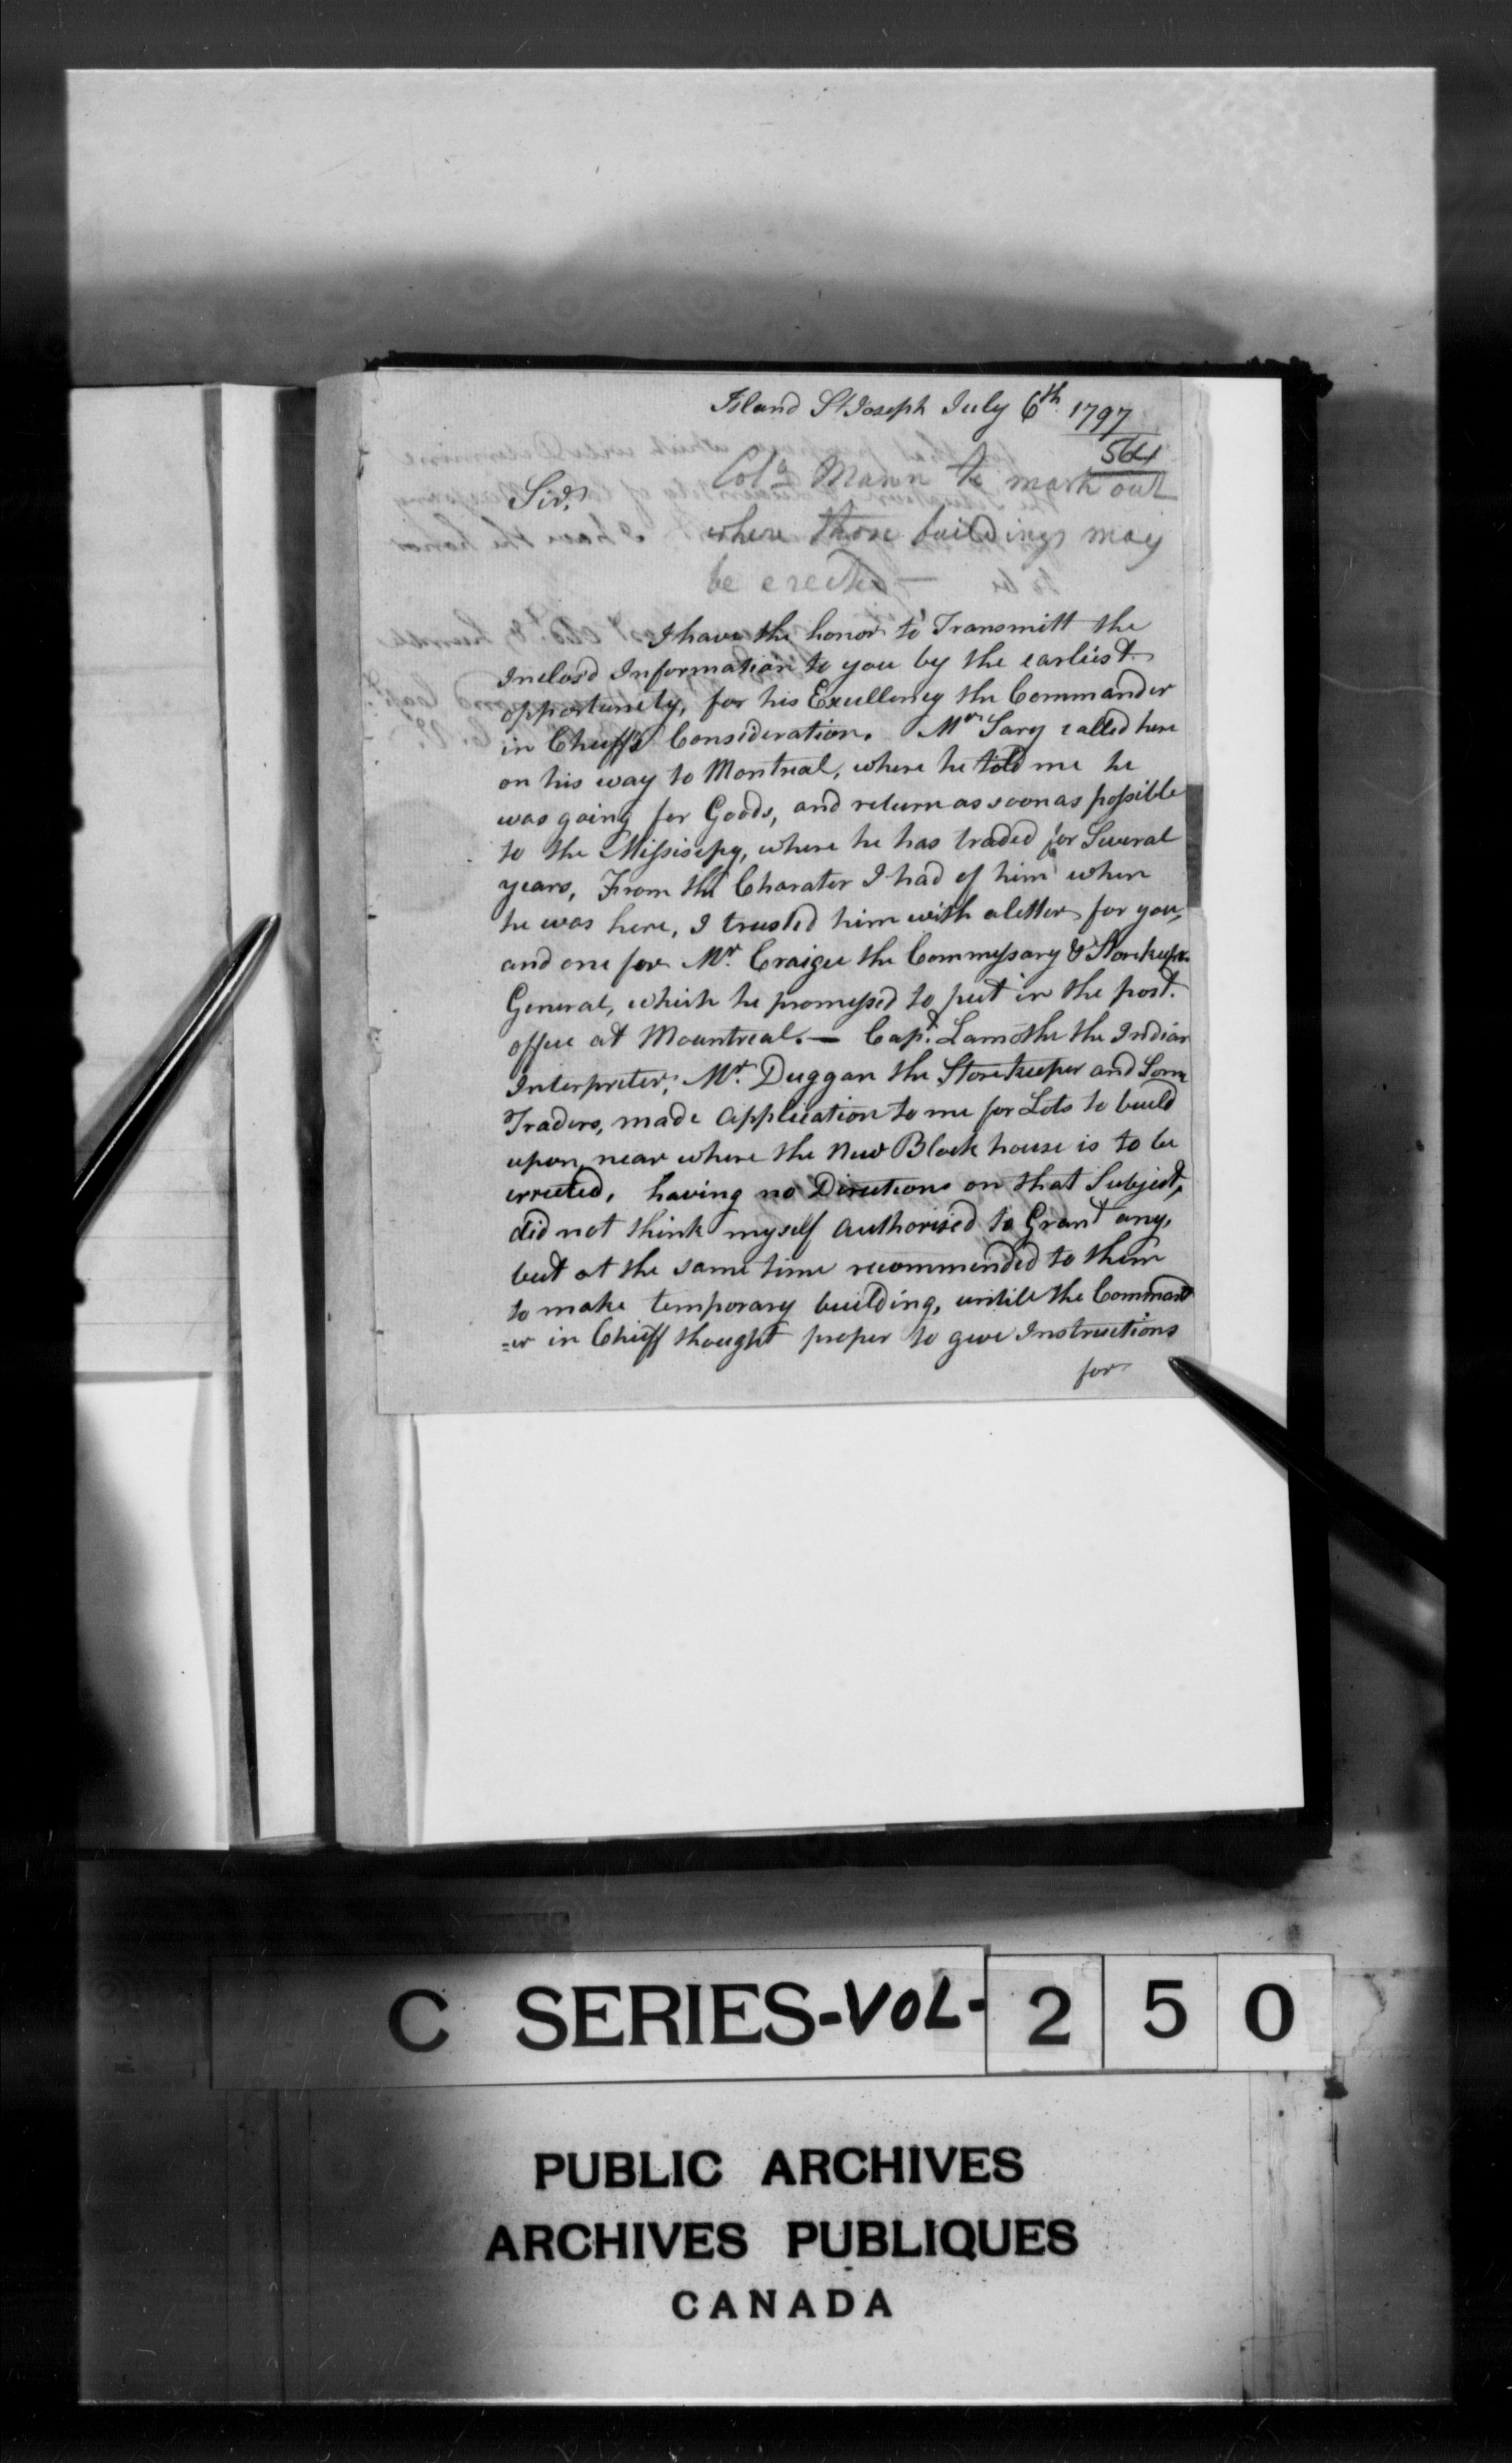 Island St Joseph July 6th 1797
564
Colo Mann to mark out
Sir,
where those buildings may
be erected —
I have the honor to Transmitt the
Inclos'd Information to you by the earliest
opportunity, for his Excellency the Commander
in Chieff's Consideration. Mr Sary called here
on his way to Montreal, where he told me he
was going for Goods, and return as soon as possible
to the Missisepy, where he has traded for Several
years, From the Charater I had of him when
he was here, I trusted him with a letter for you,
and one for Mr. Craigie the Commyssary & Storekeepr
General, which he promessed to put in the post
office at Mountreal. — Capt. Lamothe the Indian
Interpreter, Mr. Duggan the Storekeeper and Some
Traders, made application to me for Lots to build
upon, near where the New Block house is to be
errected, having no Directions on that Subject,
did not think myself authorised to Grant any,
but at the same time recommended to them
to make temporary building, untill the Command
=er in Chieff thought proper to give Instructions
for
C SERIES-VOL-250
PUBLIC ARCHIVES
ARCHIVES PUBLIQUES
CANADA